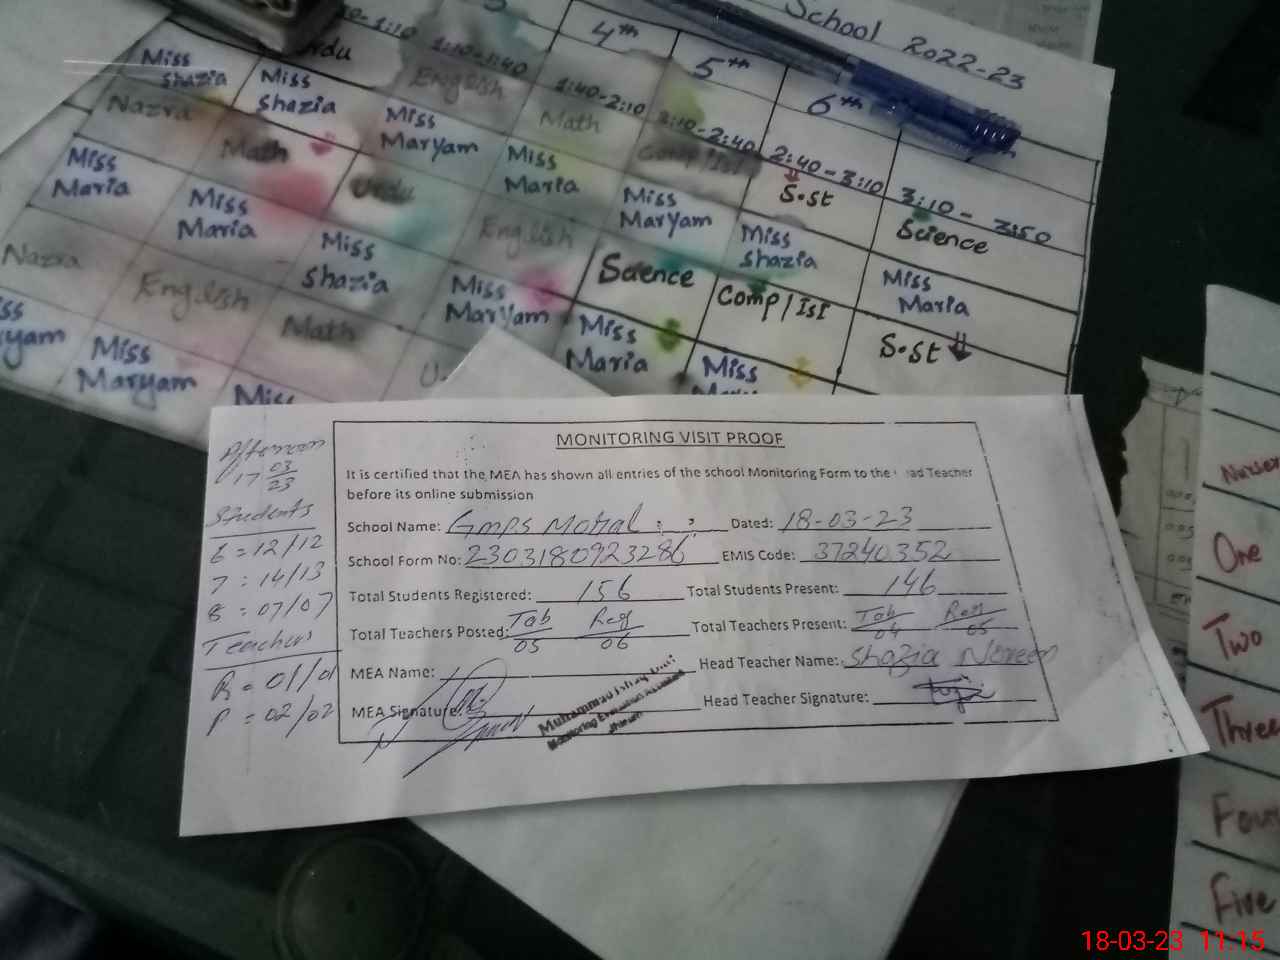 School 2022-23
4th
5th
6th
1:10
1:10-1:40
1:40-2:10
2:10-2:40
2:40-3:10
3:10-3:50
Urdu
English
Math
Comp/Ist
S.st
Science
Miss Shazia
Miss Shazia
Miss Maryam
Miss Maria
Miss Maryam
Miss Shazia
Miss Maria
Nazra
Math
Urdu
English
Science
Comp/Ist
S.st
Miss Maria
Miss Maria
Miss Shazia
Miss Maryam
Miss Maria
Miss
Nazra
English
Math
Miss Maryam
Miss
Afternoon
17 03/23
Students
6 = 12/12
7 : 14/13
8 = 07/07
Teachers
R = 01/01
P = 02/02
MONITORING VISIT PROOF
It is certified that the MEA has shown all entries of the school Monitoring Form to the ad Teacher
before its online submission
School Name: GMPS Mohal Dated: 18-03-23
School Form No: 2303180923286 EMIS Code: 37240352
Total Students Registered: 156 Total Students Present: 146
Total Teachers Posted: Tab 05 Reg 06 Total Teachers Present: Tab 04 Reg 05
MEA Name: Head Teacher Name: Shazia Noreen
MEA Signature: Head Teacher Signature:
Muhammad Ishaq
Monitoring Evaluation Assistant
Jhelum
Nursery
One
Two
Three
Four
Five
18-03-23 11:15